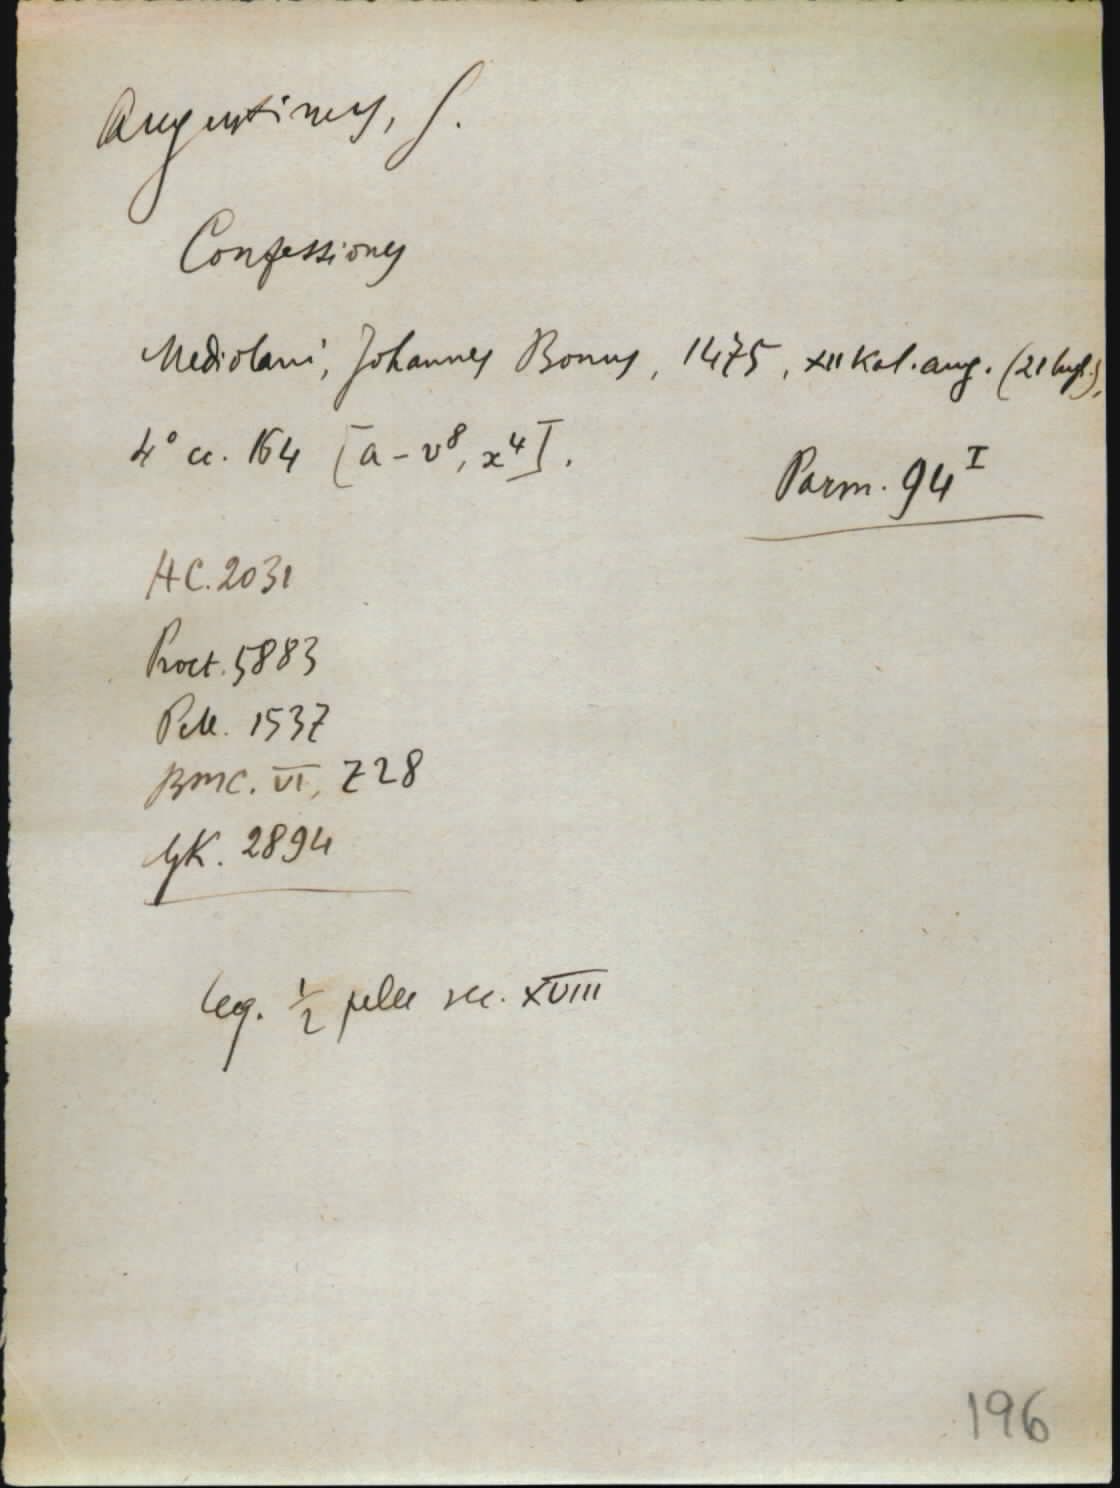 Augustinus, S.
Confessiones
Mediolani, Johannes Bonus, 1475, XII Kal. aug. (21 lugl.),
4° cc. 164 [a-v⁸, x⁴].
Parm. 94 I
HC. 2031
Proct. 5883
Pell. 1537
BMC. VI, 728
GK. 2894
Leg. 1/2 pelle sec. XVIII
196